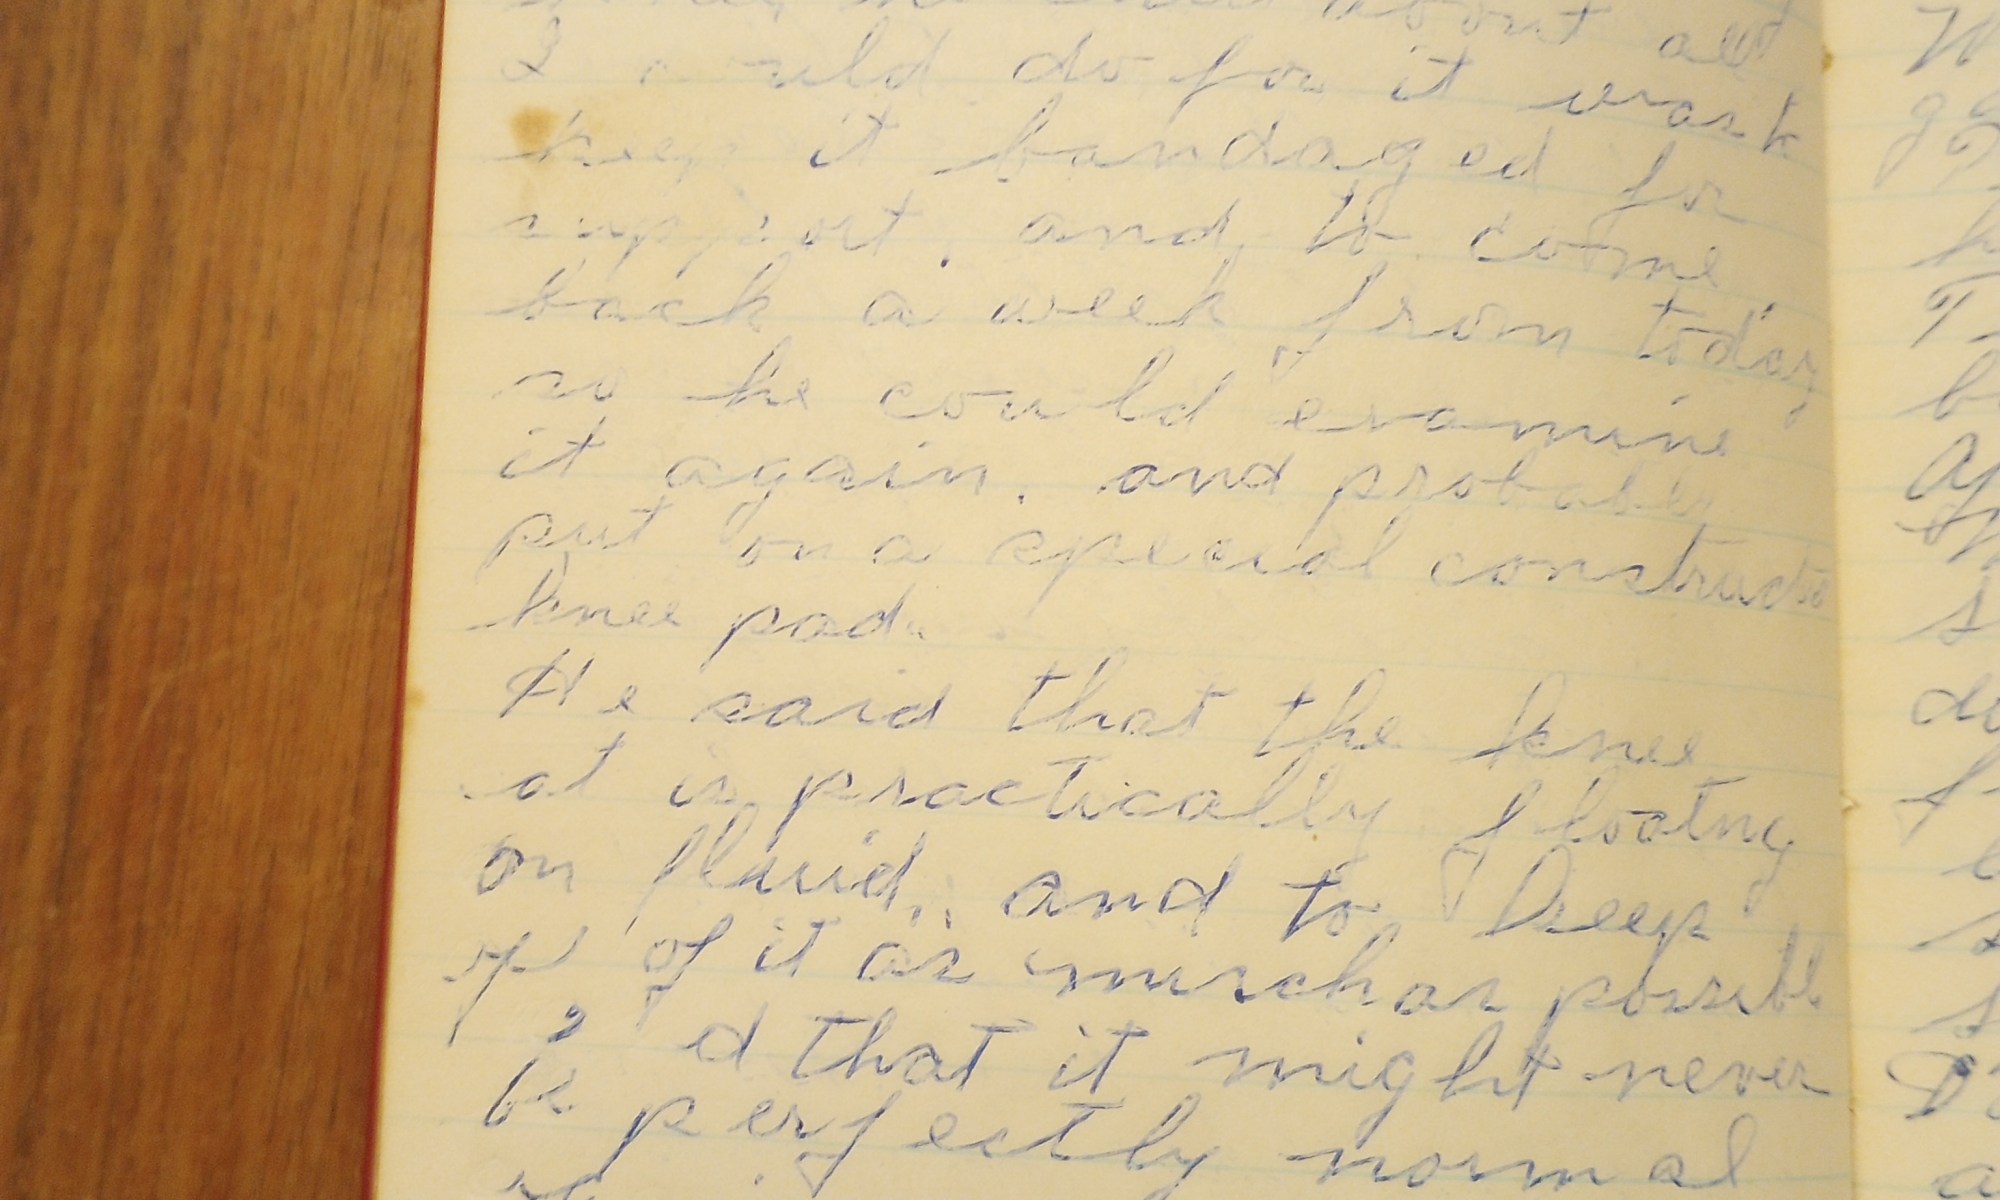 about all
I could do for it was to
keep it bandaged for
support. and, to come
back a week from today
so he could examine
it again. and probably
put on a special constructed
knee pad.
He said that the knee
at is practically floatng
on fluid. and to keep
of it as much as possible
d that it might never
be perfectly normal